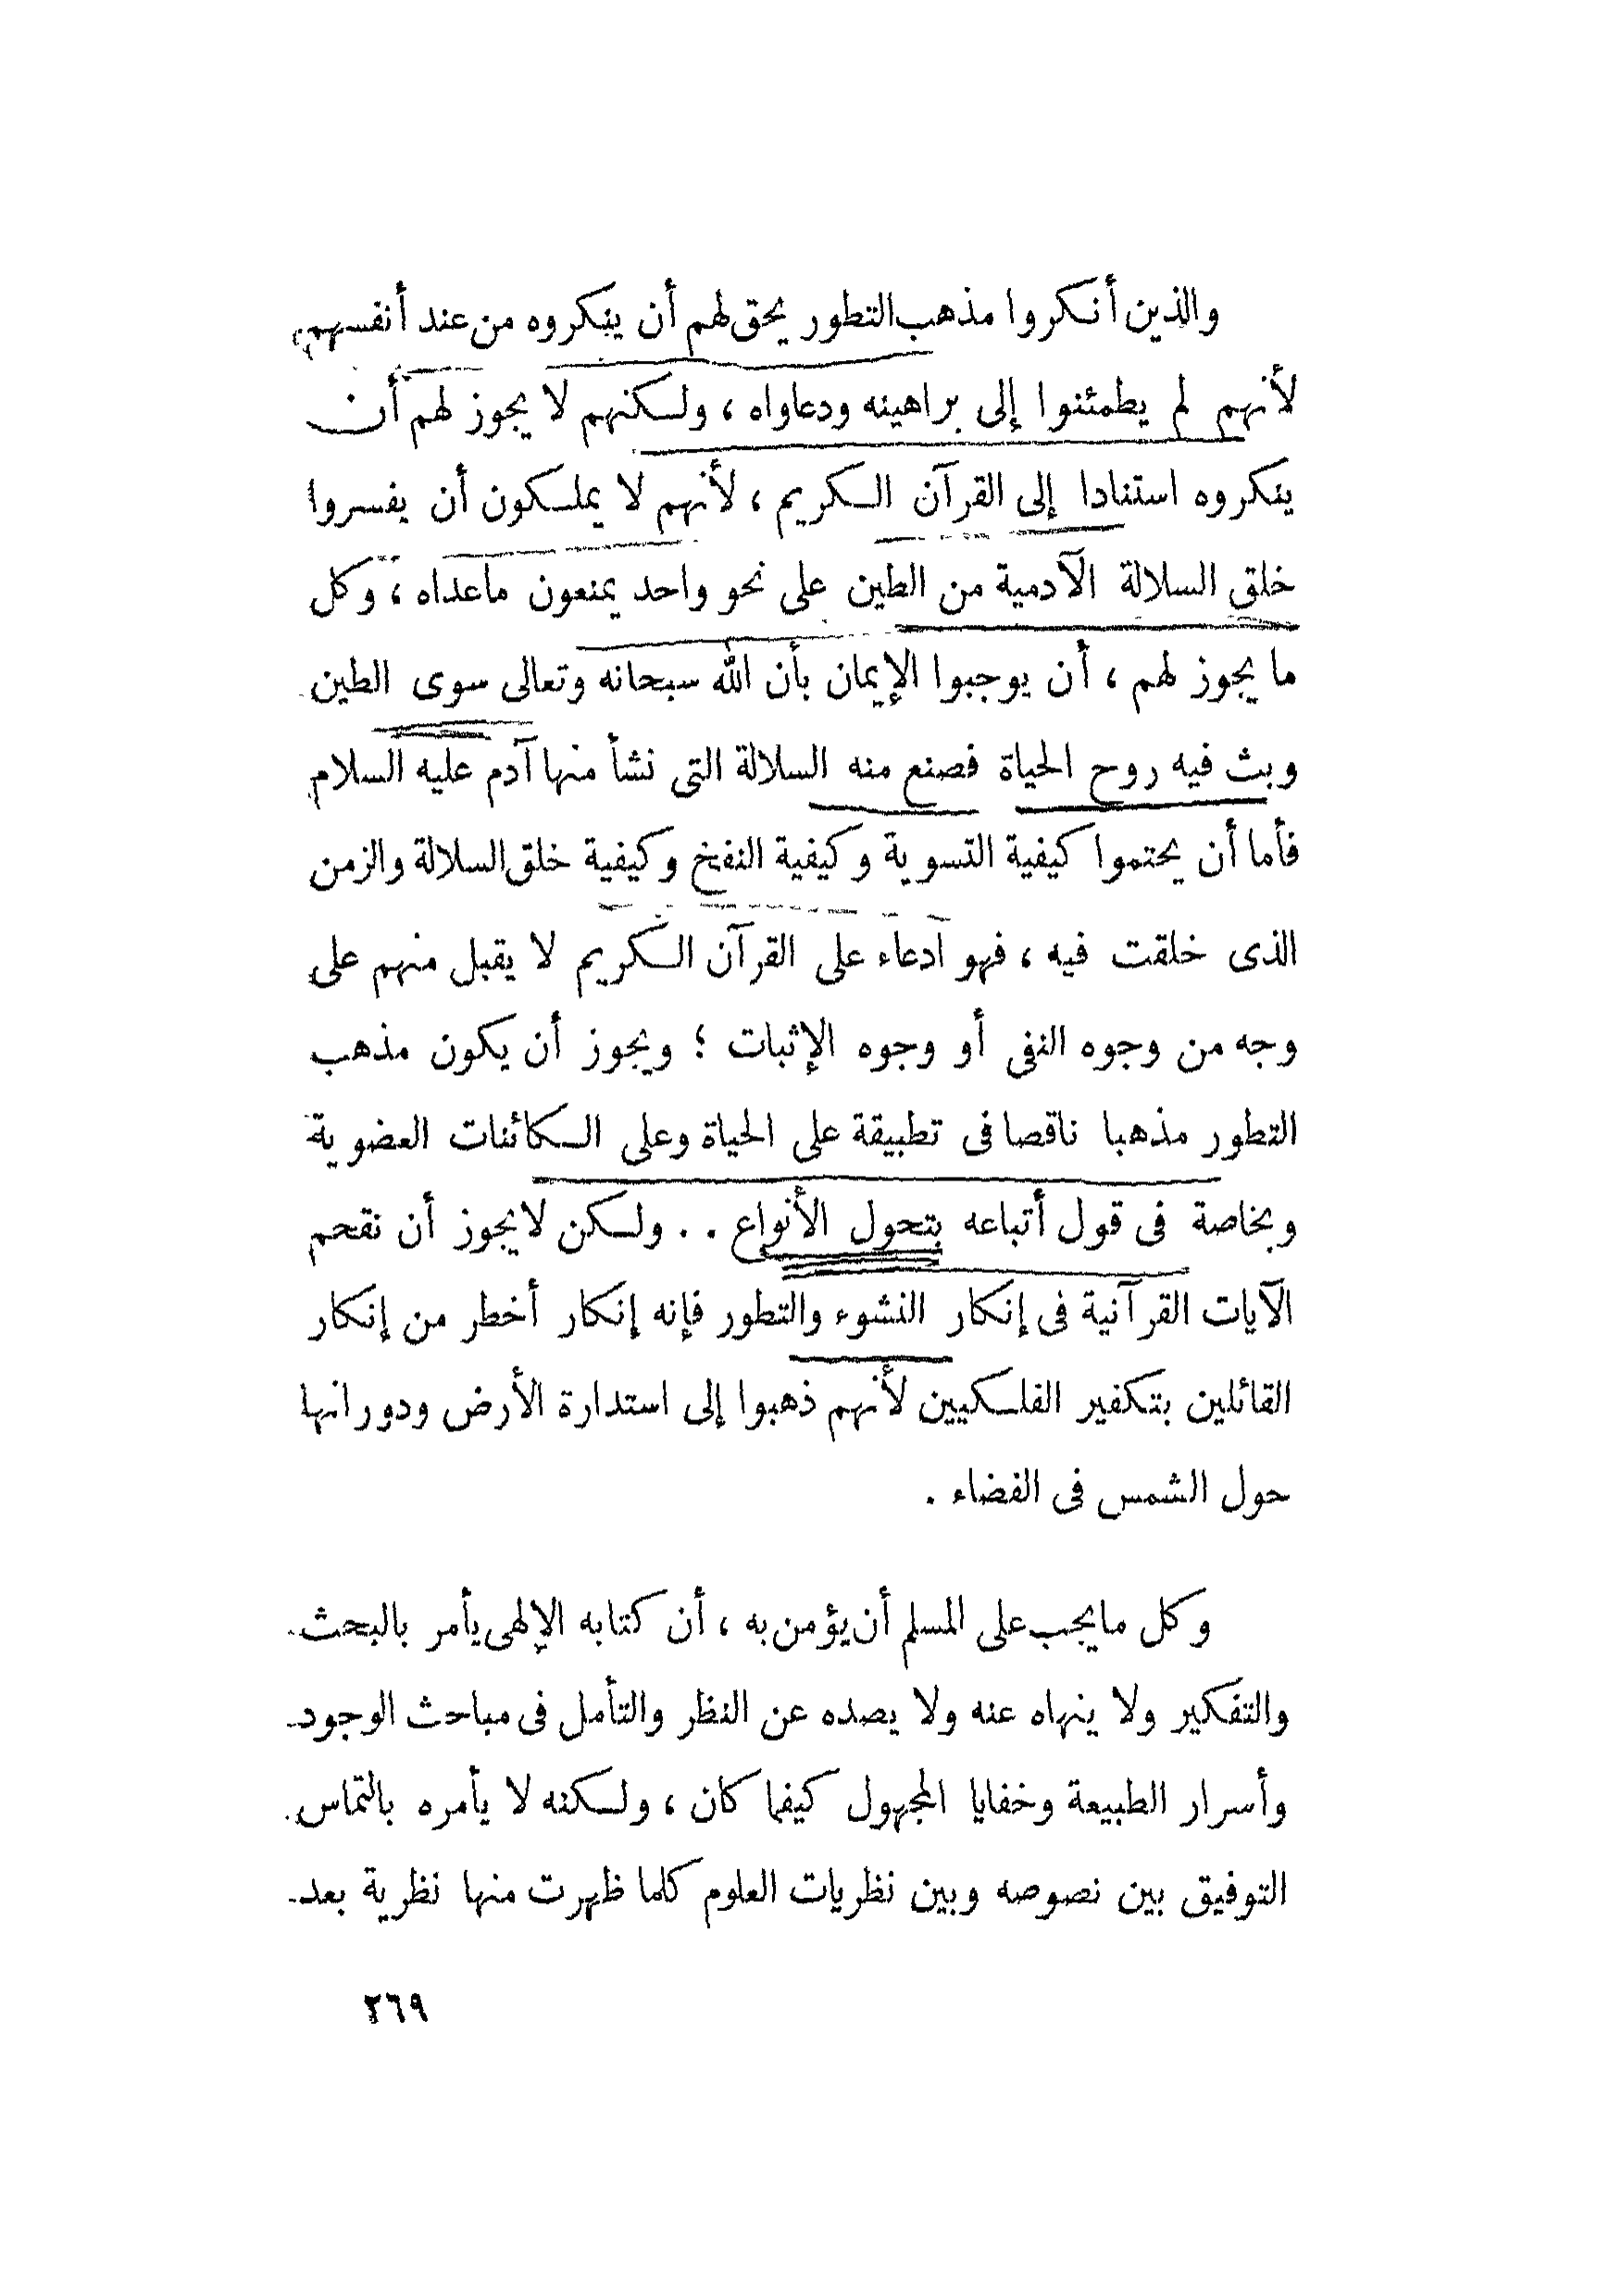 والذين أنكروا مذهب التطور يحق لهم أن ينكروه من عند أنفسهم
لأنهم لم يطمئنوا إلى براهينه ودعاواه ، ولكنهم لا يجوز لهم أن
ينكروه استنادا إلى القرآن الكريم ، لأنهم لا يملكون أن يفسروا
خلق السلالة الآدمية من الطين على نحو واحد يمنعون ماعداه ، وكل
ما يجوز لهم ، أن يوجبوا الإيمان بأن الله سبحانه وتعالى سوى الطين
وبث فيه روح الحياة فصنع منه السلالة التى نشأ منها آدم عليه السلام
فأما أن يحتموا كيفية التسوية وكيفية النفخ وكيفية خلق السلالة والزمن
الذى خلقت فيه ، فهو ادعاء على القرآن الكريم لا يقبل منهم على
وجه من وجوه النفى أو وجوه الإثبات ؛ ويجوز أن يكون مذهب
التطور مذهبا ناقصا فى تطبيقة على الحياة وعلى الكائنات العضوية
وبخاصة فى قول أتباعه بتحول الأنواع . . ولكن لايجوز أن نقحم
الآيات القرآنية فى إنكار النشوء والتطور فإنه إنكار أخطر من إنكار
القائلين بتكفير الفلكيين لأنهم ذهبوا إلى استدارة الأرض ودورانها
حول الشمس فى الفضاء .
وكل مايجب على المسلم أن يؤمن به ، أن كتابه الإلهى يأمر بالبحث
والتفكير ولا ينهاه عنه ولا يصده عن النظر والتأمل فى مباحث الوجود
وأسرار الطبيعة وخفايا المجهول كيفما كان ، ولكنه لا يأمره بالتماس
التوفيق بين نصوصه وبين نظريات العلوم كلما ظهرت منها نظرية بعد
٢٦٩